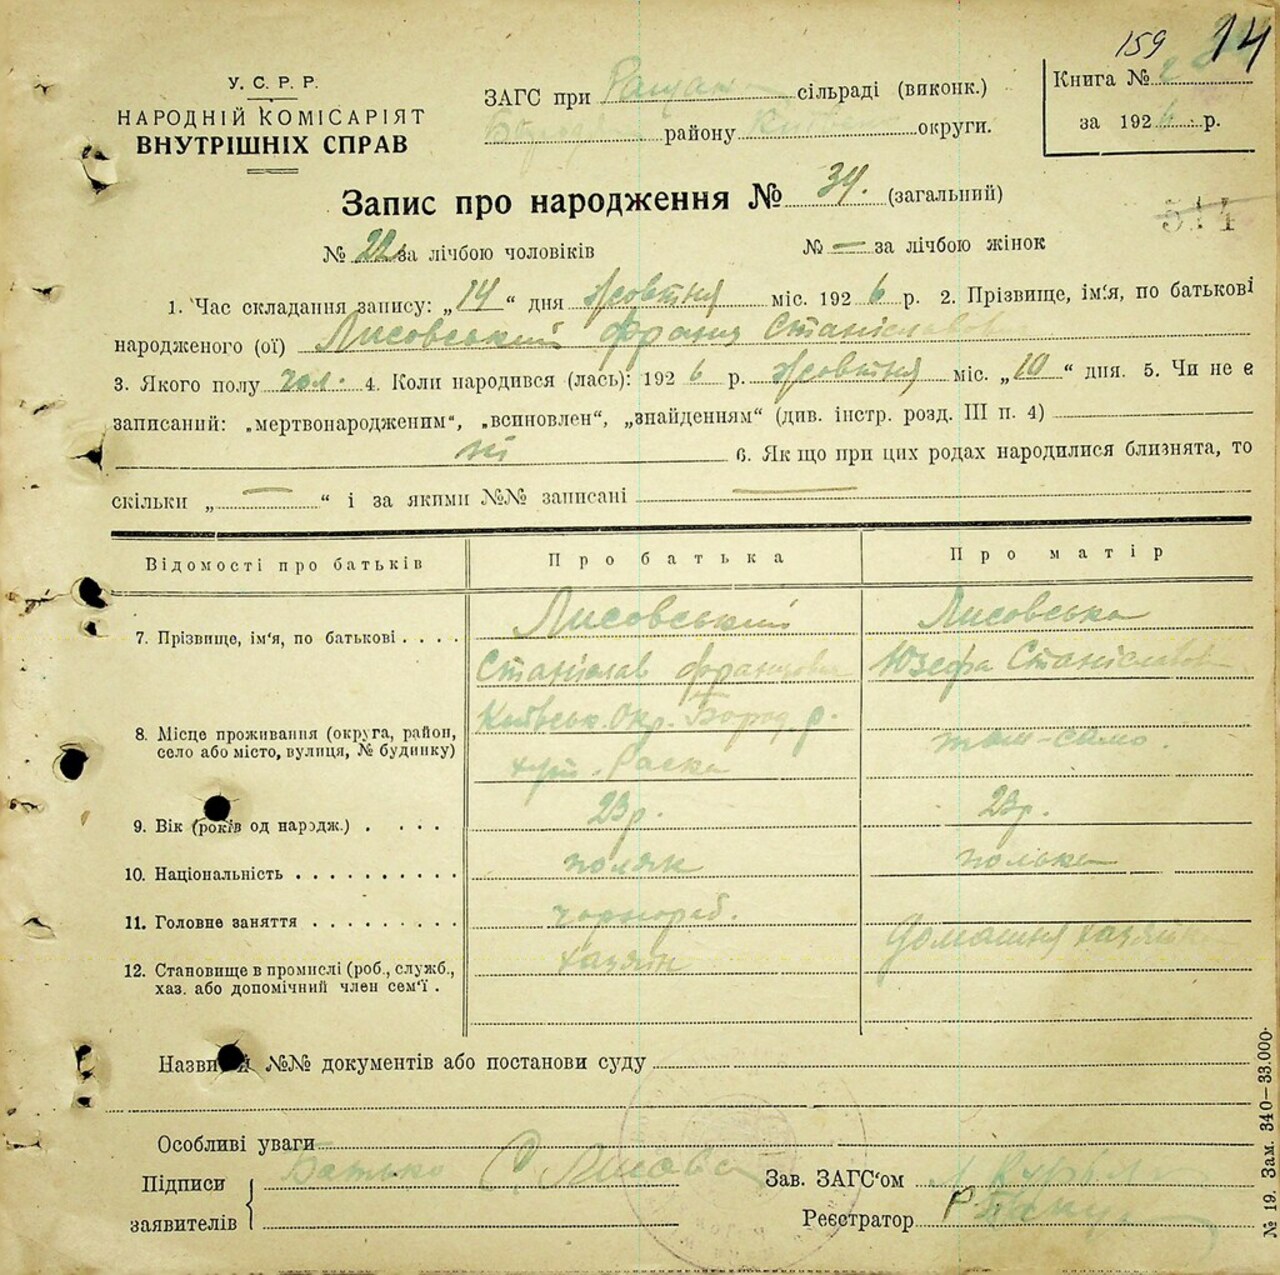 159 14
У. С. Р. Р.
НАРОДНІЙ КОМІСАРІЯТ
ВНУТРІШНІХ СПРАВ
ЗАГС при сільраді (виконк.)
району округи.
Книга №
за 1926 р.
Запис про народження № 34. (загальний)
514
№ 22 за лічбою чоловіків № — за лічбою жінок
1. Час складання запису: „14“ дня Жовтня міс. 1926 р. 2. Прізвище, ім'я, по батькові
народженого (ої) Лисовський Франц Станіславов
3. Якого полу чол. 4. Коли народився (лась): 1926 р. Жовтня міс. „10“ дня. 5. Чи не є
записаний: „мертвонародженим“, „всиновлен“, „знайденням“ (див. інстр. розд. III п. 4)
ні 6. Як що при цих родах народилися близнята, то
скільки „—“ і за якими №№ записані —
Відомості про батьків Про батька Про матір
7. Прізвище, ім'я, по батькові . . . . Лисовський Лисовська
Станіслав Францович Юзефа Станіславов
8. Місце проживання (округа, район, Київськ. Окр. Бород. р.
село або місто, вулиця, № будинку) хут. Раска там-само.
9. Вік (років од народж.) . . . . 23 р. 23 р.
10. Національність . . . . . . . . . . поляк полька
11. Головне заняття . . . . . . . . . чорнороб. Домашня хазяйка
12. Становище в промислі (роб., служб., хазяїн
хаз. або допомічний член сем'ї .
Назви й №№ документів або постанови суду
Особливі уваги
Підписи Батько С. Лисовс
заявителів
Зав. ЗАГС'ом
Реєстратор
№ 19. Зам. 340—33.000.